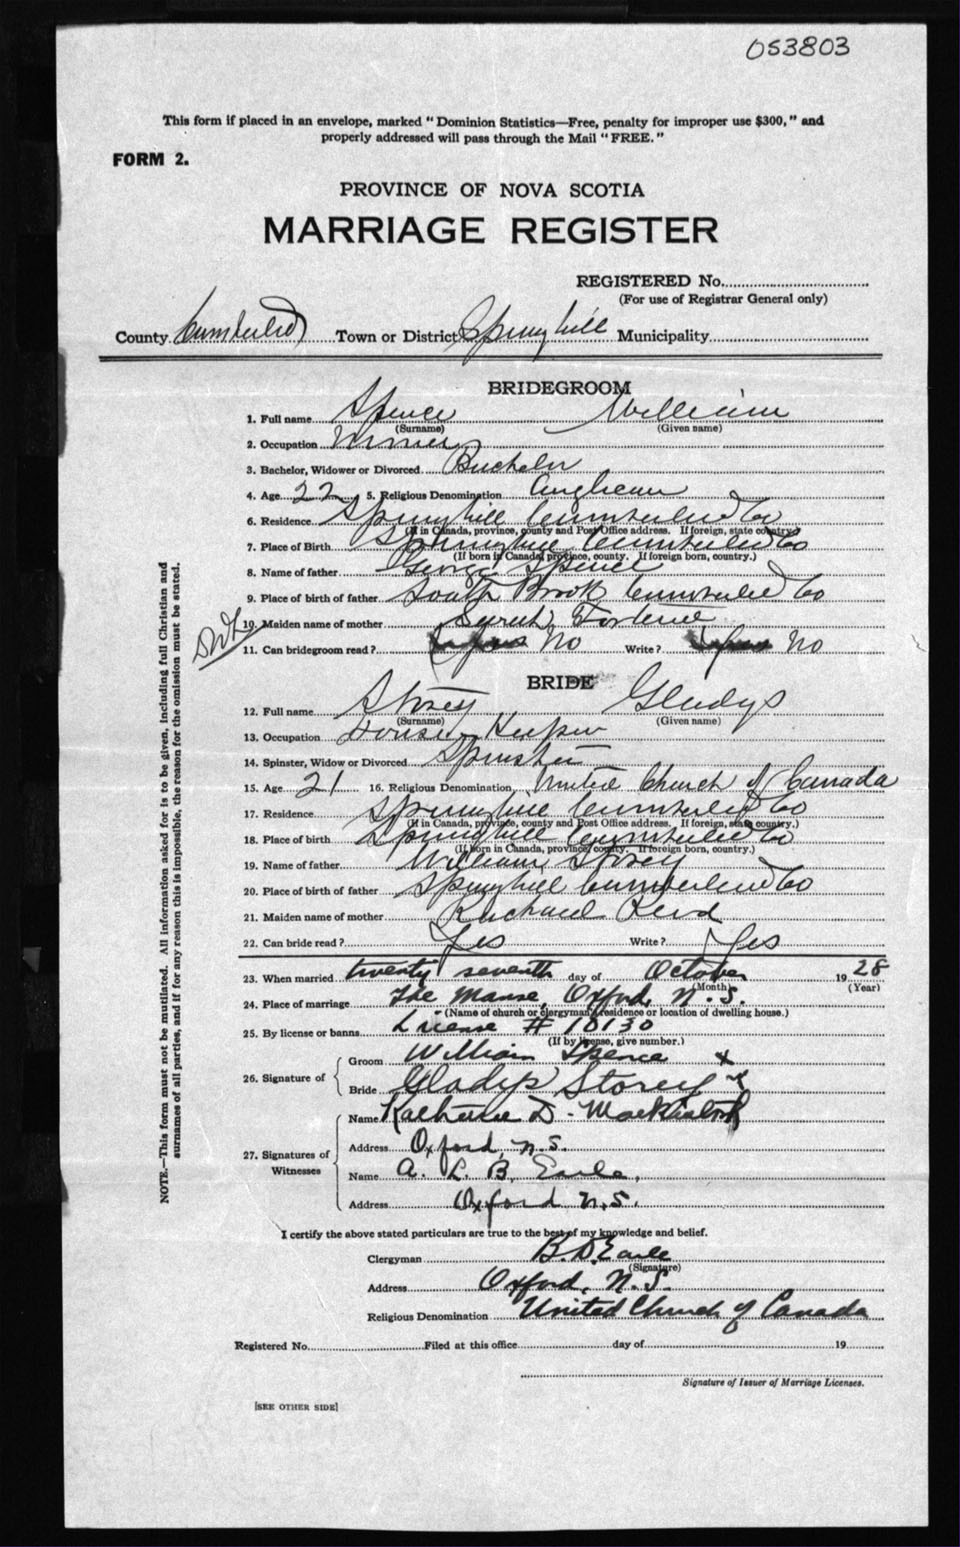 053803
This form if placed in an envelope, marked "Dominion Statistics—Free, penalty for improper use $300," and
properly addressed will pass through the Mail "FREE."
FORM 2.
PROVINCE OF NOVA SCOTIA
MARRIAGE REGISTER
REGISTERED No.
(For use of Registrar General only)
County Cumberland Town or District Springhill Municipality
BRIDEGROOM
1. Full name Spence William
(Surname) (Given name)
2. Occupation Miner
3. Bachelor, Widower or Divorced Bachelor
4. Age 22 5. Religious Denomination Anglican
6. Residence Springhill Cumberland Co
(If in Canada, province, county and Post Office address. If foreign, state country)
7. Place of Birth Springhill Cumberland Co
(If born in Canada, province, county. If foreign born, country.)
8. Name of father George Spence
9. Place of birth of father South Brook Cumberland Co
10. Maiden name of mother Sarah
11. Can bridegroom read? No Write? No
BRIDE
12. Full name Storey Gladys
(Surname) (Given name)
13. Occupation House Keeper
14. Spinster, Widow or Divorced Spinster
15. Age 21 16. Religious Denomination United Church of Canada
17. Residence Springhill Cumberland Co
(If in Canada, province, county and Post Office address. If foreign, state country.)
18. Place of birth Springhill Cumberland Co
(If born in Canada, province, county. If foreign born, country.)
19. Name of father William Storey
20. Place of birth of father Springhill Cumberland Co
21. Maiden name of mother Rachael Reid
22. Can bride read? Yes Write? Yes
23. When married twenty seventh day of October 1928
(Month) (Year)
24. Place of marriage The Manse, Oxford, N.S.
(Name of church or clergyman's residence or location of dwelling house.)
25. By license or banns License # 10130
(If by license, give number.)
26. Signature of
Groom William Spence x
Bride Gladys Storey x
27. Signatures of Witnesses
Name Katherine D.
Address Oxford, N.S.
Name A. L. B. Earle,
Address Oxford N.S.
I certify the above stated particulars are true to the best of my knowledge and belief.
Clergyman B. D. Earle
(Signature)
Address Oxford, N.S.
Religious Denomination United Church of Canada
Registered No. Filed at this office day of 19
Signature of Issuer of Marriage Licenses.
[SEE OTHER SIDE]
NOTE.—This form must not be mutilated. All information asked for is to be given, including full Christian and
surnames of all parties, and if for any reason this is impossible, the reason for the omission must be stated.